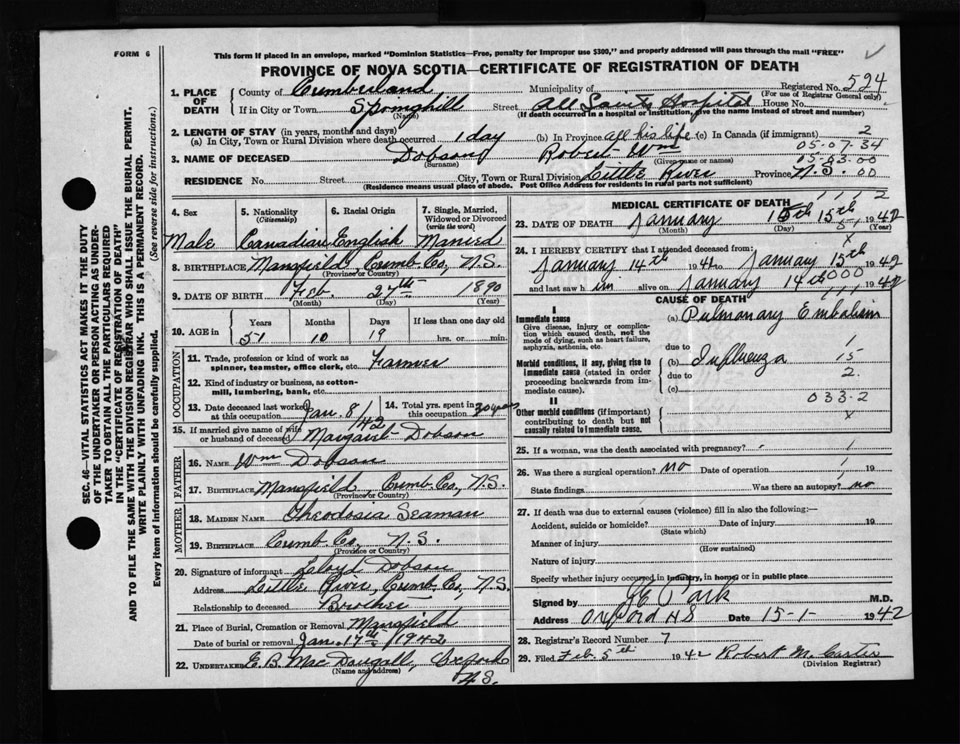 FORM 6
This form if placed in an envelope, marked "Dominion Statistics—Free, penalty for improper use $300," and properly addressed will pass through the mail "FREE"
PROVINCE OF NOVA SCOTIA—CERTIFICATE OF REGISTRATION OF DEATH
SEC. 46—VITAL STATISTICS ACT MAKES IT THE DUTY
OF THE UNDERTAKER OR PERSON ACTING AS UNDER-
TAKER TO OBTAIN ALL THE PARTICULARS REQUIRED
IN THE "CERTIFICATE OF REGISTRATION OF DEATH"
AND TO FILE THE SAME WITH THE DIVISION REGISTRAR WHO SHALL ISSUE THE BURIAL PERMIT.
WRITE PLAINLY WITH UNFADING INK. THIS IS A PERMANENT RECORD.
Every item of information should be carefully supplied. (See reverse side for instructions.)
1. PLACE OF DEATH County of Cumberland Municipality of Registered No. 594
(For use of Registrar General only)
If in City or Town Springhill Street All Saints Hospital House No.
(Name) (If death occurred in a hospital or institution, give the name instead of street and number)
2. LENGTH OF STAY (in years, months and days)
(a) In City, Town or Rural Division where death occurred 1 day (b) In Province all his life (c) In Canada (if immigrant) 2
05-07-34
3. NAME OF DECEASED Dobson Robert Wm
(Surname) (Given name or names) 05-63-00
RESIDENCE No. Street City, Town or Rural Division Little River Province N.S. 00
(Residence means usual place of abode. Post Office Address for residents in rural parts not sufficient)
4. Sex Male
5. Nationality (Citizenship) Canadian
6. Racial Origin English
7. Single, Married, Widowed or Divorced (write the word) Married
8. BIRTHPLACE Mansfield, Cumb. Co., N.S.
(Province or Country)
9. DATE OF BIRTH Feb. 27th 1890
(Month) (Day) (Year)
10. AGE in Years Months Days If less than one day old
51 10 19 hrs. or min.
OCCUPATION
11. Trade, profession or kind of work as spinner, teamster, office clerk, etc. Farmer
12. Kind of industry or business, as cotton-mill, lumbering, bank, etc.
13. Date deceased last worked at this occupation Jan. 8/42 14. Total yrs. spent in this occupation 30 years
15. If married give name of wife or husband of deceased Margaret Dobson
FATHER
16. NAME Wm Dobson
17. BIRTHPLACE Mansfield, Cumb. Co., N.S.
(Province or Country)
MOTHER
18. MAIDEN NAME Theodosia Seaman
19. BIRTHPLACE Cumb. Co. N.S.
(Province or Country)
20. Signature of informant Lloyd Dobson
Address Little River, Cumb. Co., N.S.
Relationship to deceased Brother
21. Place of Burial, Cremation or Removal Mansfield
Date of burial or removal Jan. 17th, 1942
22. UNDERTAKER E.B. MacDougall, Oxford
(Name and address) N.S.
MEDICAL CERTIFICATE OF DEATH 1 1 1 2
23. DATE OF DEATH January 15th 1942
(Month) (Day) (Year)
24. I HEREBY CERTIFY that I attended deceased from:
January 14th 1942 to January 15th 1942
and last saw him alive on January 14th 1942
CAUSE OF DEATH
I
Immediate cause (a) Pulmonary Embolism
Give disease, injury or complication which caused death, not the mode of dying, such as heart failure, asphyxia, asthenia, etc.
due to 1
Morbid conditions, if any, giving rise to immediate cause (stated in order proceeding backwards from immediate cause).
(b) Influenza 15
due to 2.
(c)
033-2
II
Other morbid conditions (if important) contributing to death but not causally related to immediate cause. x
25. If a woman, was the death associated with pregnancy?
26. Was there a surgical operation? no Date of operation 19
State findings Was there an autopsy? no
27. If death was due to external causes (violence) fill in also the following:—
Accident, suicide or homicide? Date of injury 19
(State which)
Manner of injury
(How sustained)
Nature of injury
Specify whether injury occurred in industry, in home, or in public place
Signed by Park M.D.
Address Oxford NS Date 15-1- 1942
28. Registrar's Record Number 7
29. Filed Feb. 5th 1942 Robert M. Carter
(Division Registrar)